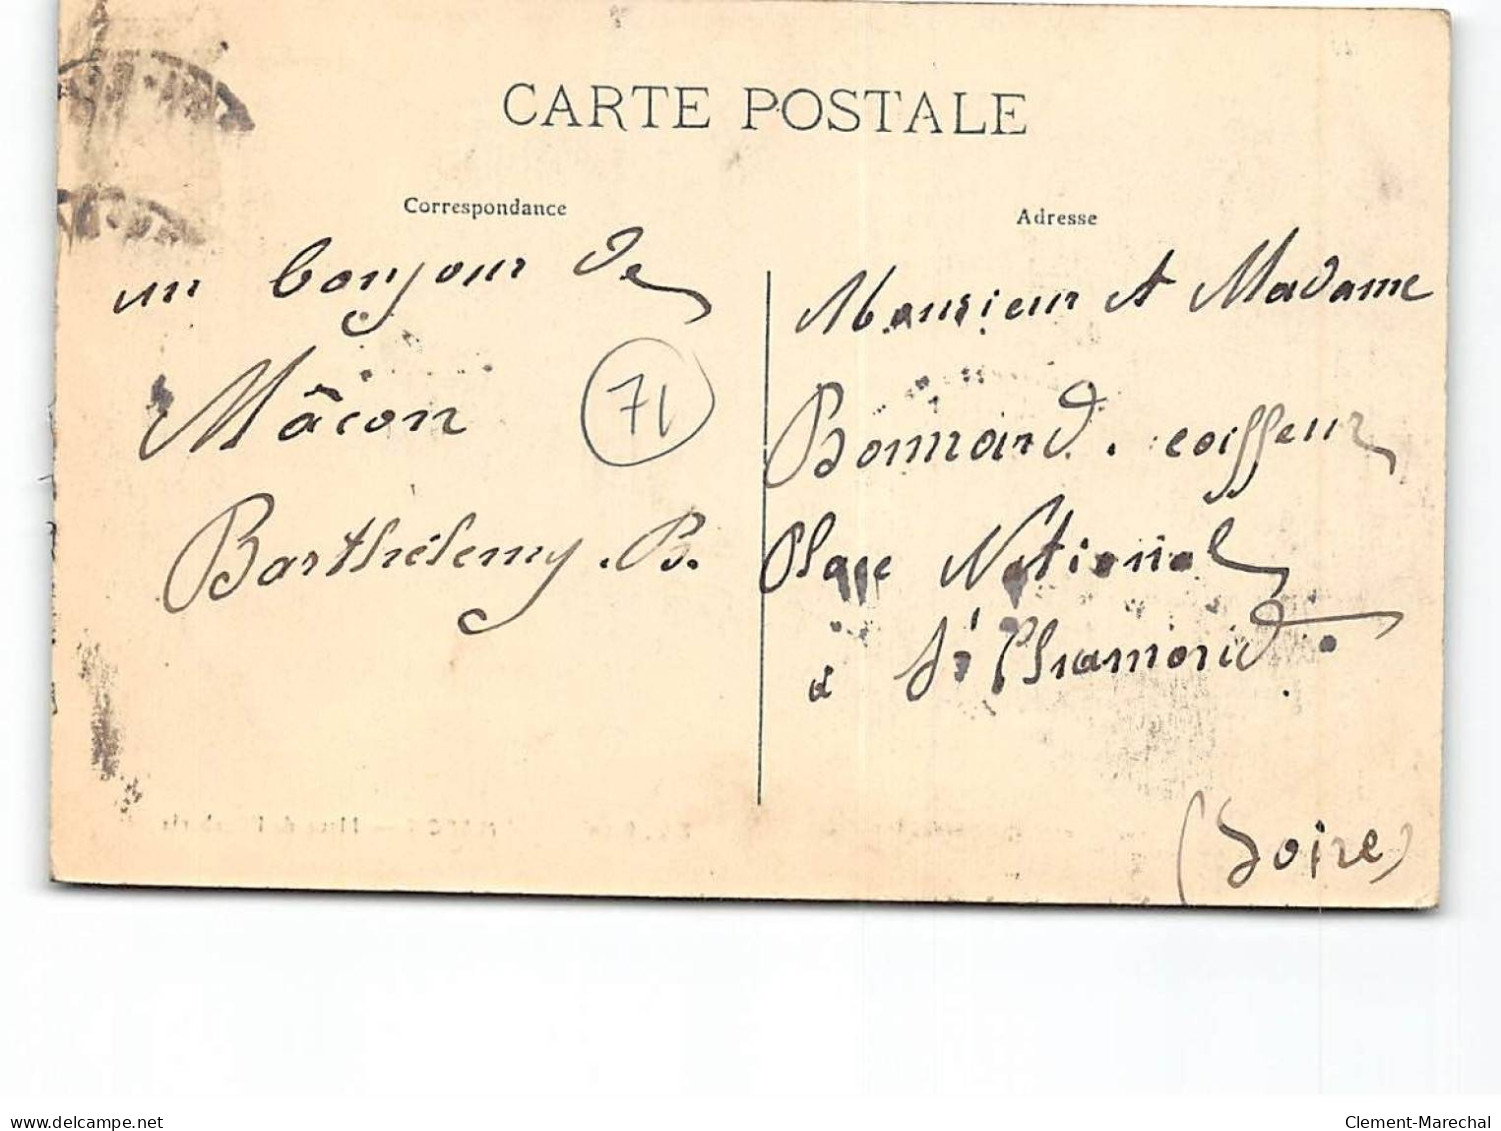 CARTE POSTALE
Correspondance
un bonjour de
Mâcon
71
Barthélemy. B.
Adresse
Monsieur et Madame
Bonnard. coiffeur
Place National
à St Chamond.
(Loire)
delcampe.net
Clement-Marechal